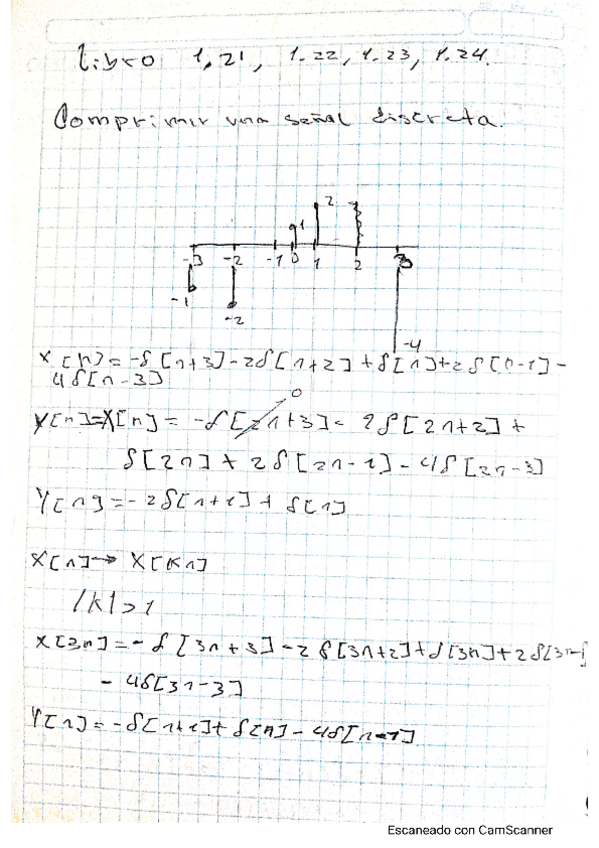 Libro 1.21, 1.22, 1.23, 1.24.
Comprimir una señal discreta.
1 2
-3 -2 -1 0 1 2 3
-1
-2
-4
X[n] = -δ[n+3] - 2δ[n+2] + δ[n] + 2δ[n-1] -
4δ[n-3]
0
Y[n] = X[n] = -δ[2n+3] - 2δ[2n+2] +
δ[2n] + 2δ[2n-1] - 4δ[2n-3]
Y[n] = -2δ[n+1] + δ[n]
X[n] → X[kn]
|k| > 1
X[3n] = -δ[3n+3] - 2δ[3n+2] + δ[3n] + 2δ[3n-1]
- 4δ[3n-3]
Y[n] = -δ[n+1] + δ[n] - 4δ[n-1]
Escaneado con CamScanner